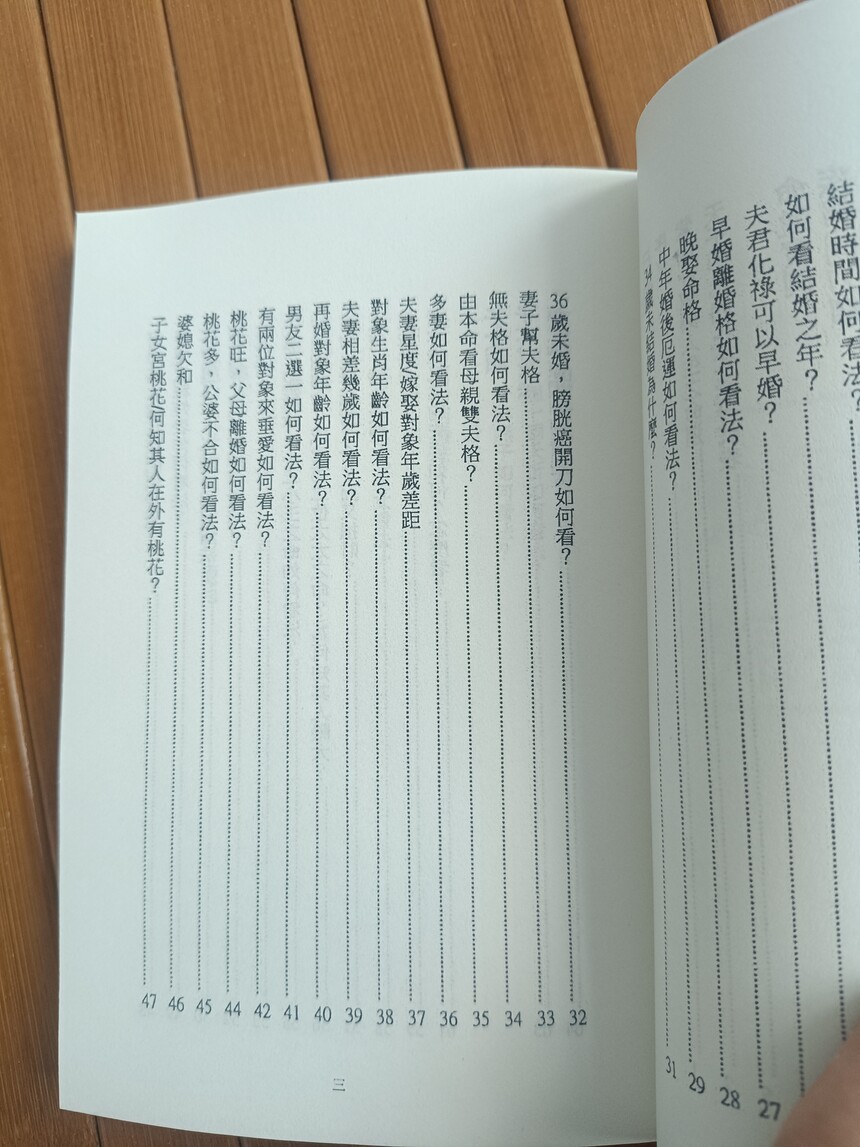 結婚時間如何看法？
如何看結婚之年？
夫君化祿可以早婚？
早婚離婚格如何看法？27
晚娶命格28
中年婚後厄運如何看法？29
34歲未結婚為什麼？31
36歲未婚，膀胱癌開刀如何看？32
妻子幫夫格33
無夫格如何看法？34
由本命看母親雙夫格？35
多妻如何看法？36
夫妻星度/嫁娶對象年歲差距37
對象生肖年齡如何看法？38
夫妻相差幾歲如何看法？39
再婚對象年齡如何看法？40
男友二選一如何看法？41
有兩位對象來垂愛如何看法？42
桃花旺，父母離婚如何看法？44
桃花多，公婆不合如何看法？45
婆媳欠和46
子女宮桃花/何知其人在外有桃花？47
三